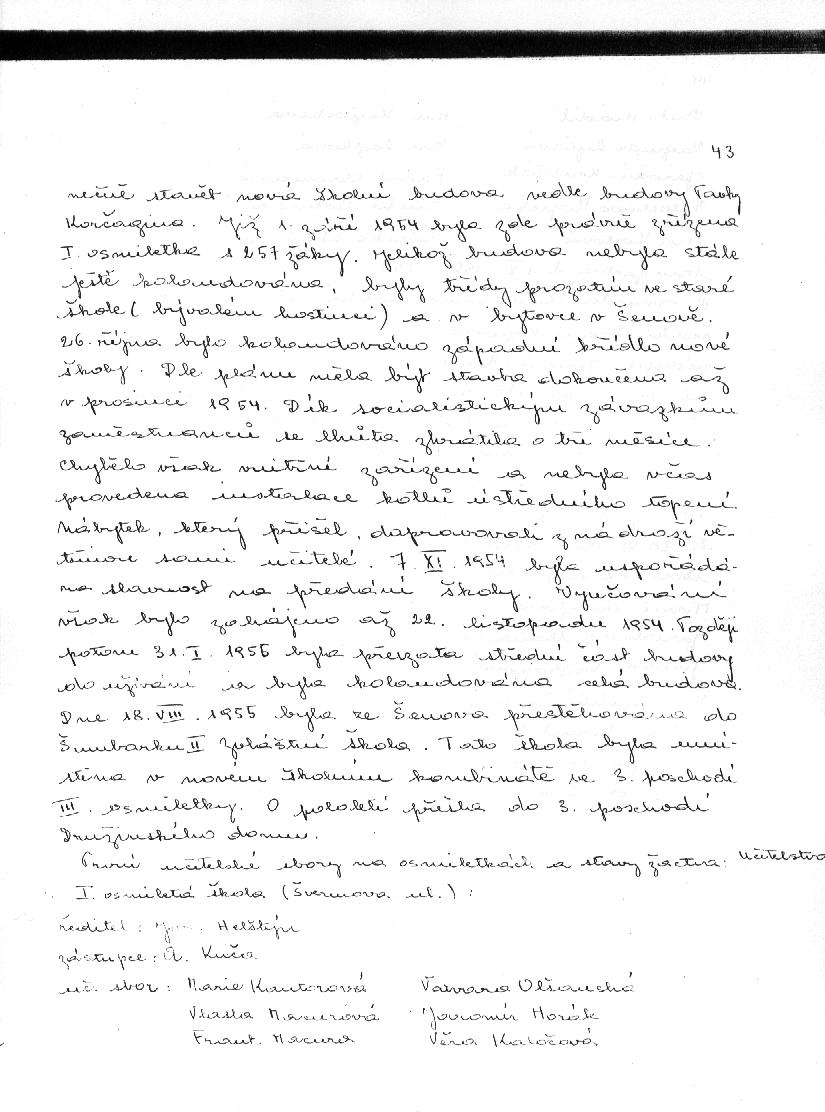 43
nečně stavět nová školní budova vedle budovy Pavky
Korčagina. Již 1. září 1954 byla zde právně zřízena
I. osmiletka s 257 žáky. Jelikož budova nebyla stále
ještě kolaudována, byly třídy prozatím ve staré
škole (bývalém hostinci) a v bytovce v Šenově.
26. října bylo kolaudováno západní křídlo nové
školy. Dle plánu měla být stavba dokončena až
v prosinci 1954. Dík socialistickým závazkům
zaměstnanců se lhůta zkrátila o tři měsíce.
Chybělo však vnitřní zařízení a nebyla včas
provedena instalace kotlů ústředního topení.
Nábytek, který přišel, dopravovali z nádraží vě-
tšinou sami učitelé. 7. XI. 1954 byla uspořádá-
na slavnost na předání školy. Vyučování
však bylo zahájeno až 22. listopadu 1954. Později
potom 31. I. 1955 byla převzata střední část budovy
do užívání a byla kolaudována celá budova.
Dne 18. VIII. 1955 byla ze Šenova přestěhována do
Šumbarku II zvláštní škola. Tato škola byla umí-
stěna v novém školním kombinátě ve 3. poschodí
III. osmiletky. O pololetí přešla do 3. poschodí
Družinského domu.
První učitelské sbory na osmiletkách a stavy žactva: Učitelstvo
I. osmiletá škola (Švermova ul.):
ředitel: Helštýn
zástupce: A. Kuča
uč. sbor: Marie Kantorová Varvara Olšanská
Vlasta Macurová Jaromír Horák
Frant. Macura Věra Kaločová